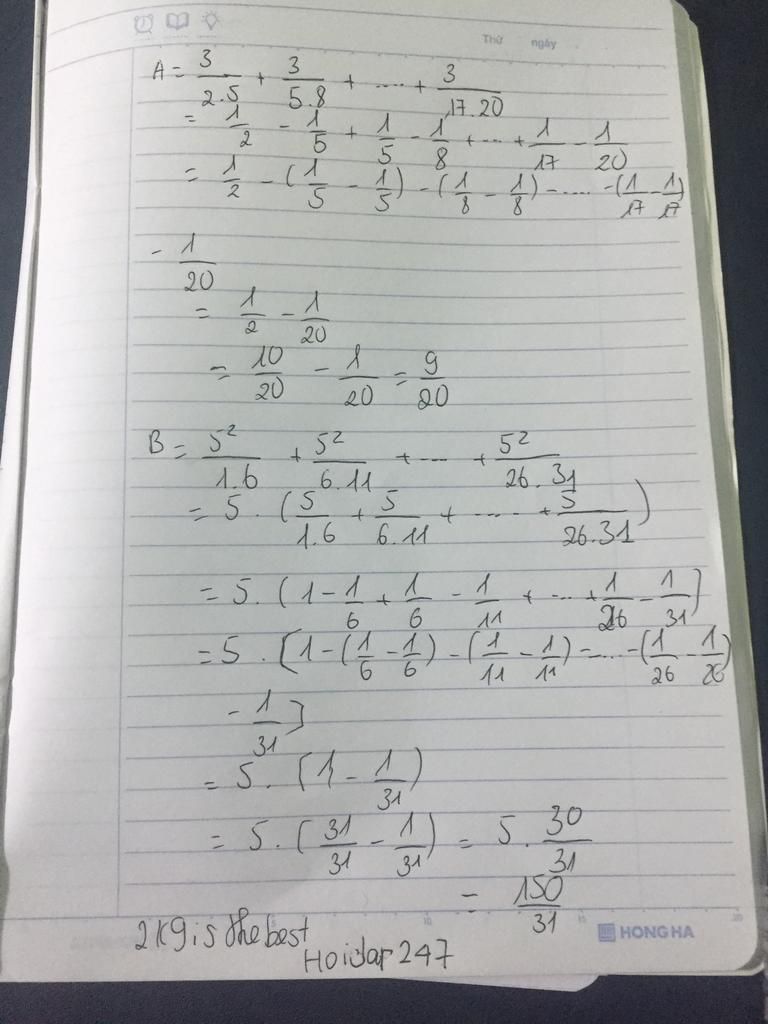 Thứ ngày
A = 3/2.5 + 3/5.8 + .... + 3/17.20
= 1/2 - 1/5 + 1/5 - 1/8 + ... + 1/17 - 1/20
= 1/2 - (1/5 - 1/5) - (1/8 - 1/8) - ..... - (1/17 - 1/17)
- 1/20
= 1/2 - 1/20
= 10/20 - 1/20 = 9/20
B = 5²/1.6 + 5²/6.11 + .... + 5²/26.31
= 5 . (5/1.6 + 5/6.11 + ..... + 5/26.31)
= 5 . (1 - 1/6 + 1/6 - 1/11 + ... + 1/26 - 1/31]
= 5 . [1 - (1/6 - 1/6) - (1/11 - 1/11) - .... - (1/26 - 1/26)
- 1/31]
= 5 . (1 - 1/31)
= 5 . (31/31 - 1/31) = 5 . 30/31
= 150/31
2K9 is the best
Hoidap 247
HONG HA